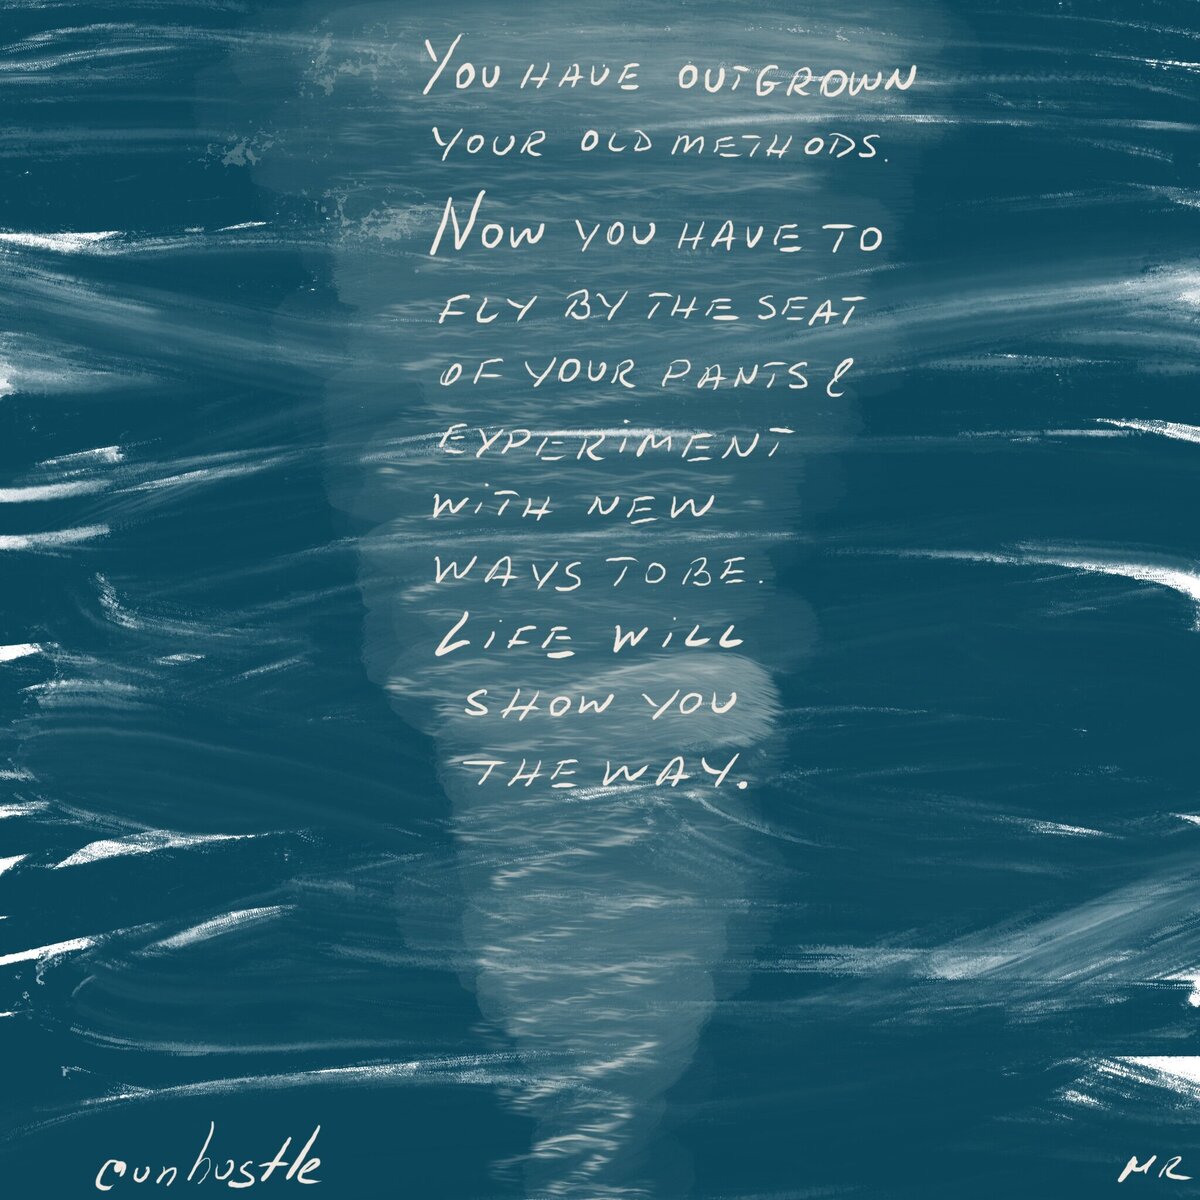 YOU HAVE OUTGROWN
YOUR OLD METHODS.
NOW YOU HAVE TO
FLY BY THE SEAT
OF YOUR PANTS &
EXPERIMENT
WITH NEW
WAYS TO BE.
LIFE WILL
SHOW YOU
THE WAY.
@unhustle
MR